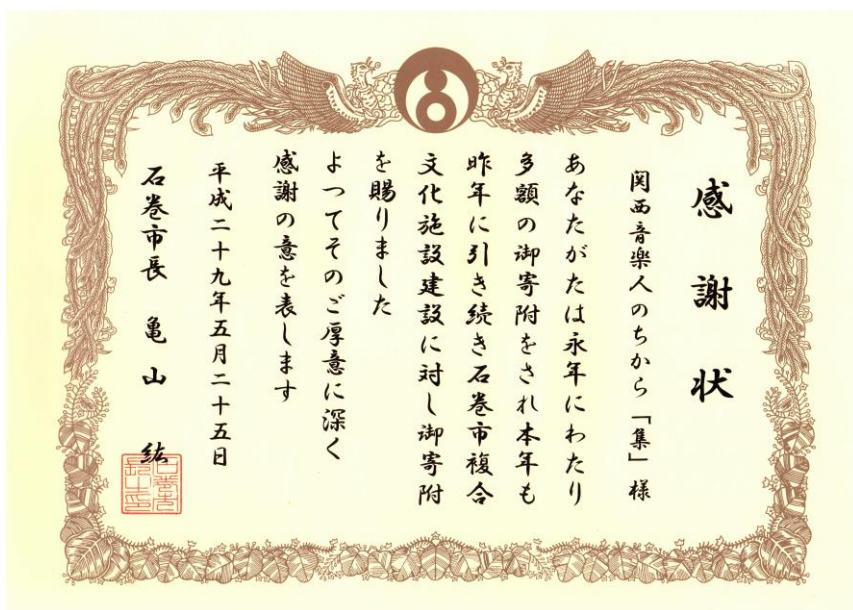 感謝状
関西音楽人のちから「集」様
あなたがたは永年にわたり
多額の御寄附をされ本年も
昨年に引き続き石巻市複合
文化施設建設に対し御寄附
を賜りました
よってそのご厚意に深く
感謝の意を表します
平成二十九年五月二十五日
石巻市長 亀山 紘
石巻市長之印